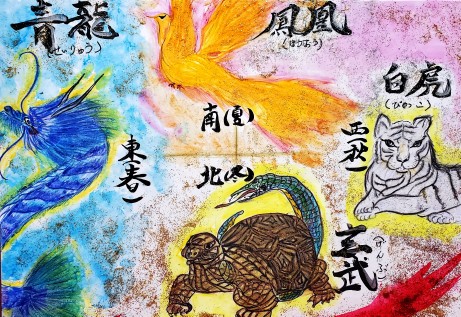 青龍
(せいりゅう)
鳳凰
(ほうおう)
白虎
(びゃっこ)
南(夏)
東(春)
西(秋)
北(冬)
玄武
(げんぶ)